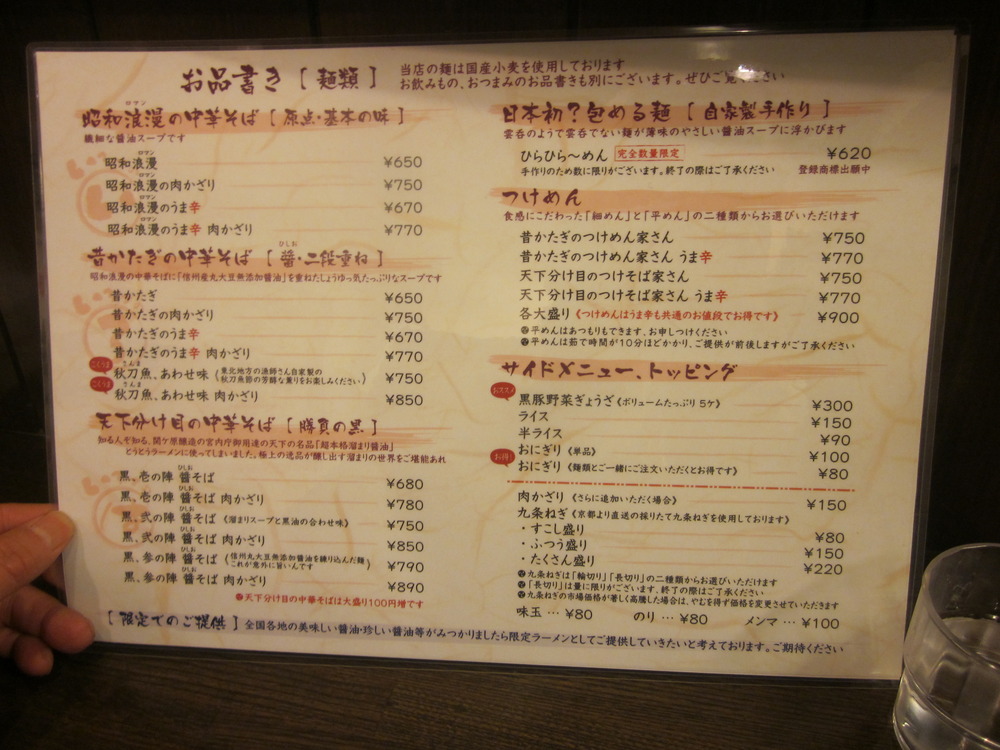 お品書き [ 麺類 ]
当店の麺は国産小麦を使用しております
お飲みもの、おつまみのお品書きも別にございます。ぜひご覧ください
昭和浪漫の中華そば [ 原点・基本の味 ]
ロマン
繊細な醤油スープです
昭和浪漫 ¥650
ロマン
昭和浪漫の肉かざり ¥750
ロマン
昭和浪漫のうま辛 ¥670
ロマン
昭和浪漫のうま辛 肉かざり ¥770
ロマン
昔かたぎの中華そば [ 醬・二段重ね ]
ひしお
昭和浪漫の中華そばに「信州産丸大豆無添加醤油」を重ねたしょうゆっ気たっぷりなスープです
昔かたぎ ¥650
昔かたぎの肉かざり ¥750
昔かたぎのうま辛 ¥670
昔かたぎのうま辛 肉かざり ¥770
こくうま
秋刀魚、あわせ味 (東北地方の漁師さん自家製の
秋刀魚節の芳醇な薫りをお楽しみください) ¥750
さんま
こくうま
秋刀魚、あわせ味 肉かざり ¥850
さんま
天下分け目の中華そば [ 勝負の黒 ]
知る人ぞ知る、関ケ原醸造の宮内庁御用達の天下の名品「超本格溜まり醤油」
とうとうラーメンに使ってしまいました。極上の逸品が醸し出す溜まりの世界をご堪能あれ
黒、壱の陣 醬そば ¥680
ひしお
黒、壱の陣 醬そば 肉かざり ¥780
ひしお
黒、弐の陣 醬そば 《溜まりスープと黒油の合わせ味》 ¥750
ひしお
黒、弐の陣 醬そば 肉かざり ¥850
ひしお
黒、参の陣 醬そば (信州丸大豆無添加醤油を練り込んだ麺
これが意外に旨いんです) ¥790
ひしお
黒、参の陣 醬そば 肉かざり ¥890
ひしお
天下分け目の中華そばは大盛り100円増です
[ 限定でのご提供 ] 全国各地の美味しい醤油・珍しい醤油等がみつかりましたら限定ラーメンとしてご提供していきたいと考えております。ご期待ください
日本初?包める麺 [ 自家製手作り ]
雲呑のようで雲呑でない麺が薄味のやさしい醤油スープに浮かびます
ひらひら〜めん 完全数量限定 ¥620
手作りのため数に限りがございます。終了の際はご了承ください 登録商標出願中
つけめん
食感にこだわった「細めん」と「平めん」の二種類からお選びいただけます
昔かたぎのつけめん家さん ¥750
昔かたぎのつけめん家さん うま辛 ¥770
天下分け目のつけそば家さん ¥750
天下分け目のつけそば家さん うま辛 ¥770
各大盛り 《つけめんはうま辛も共通のお値段でお得です》 ¥900
平めんはあつもりもできます、お申しつけください
平めんは茹で時間が10分ほどかかり、ご提供が前後しますがご了承ください
サイドメニュー、トッピング
おススメ
黒豚野菜ぎょうざ 《ボリュームたっぷり 5ケ》 ¥300
ライス ¥150
半ライス ¥90
おにぎり 《単品》 ¥100
お得!
おにぎり 《麺類とご一緒にご注文いただくとお得です》 ¥80
肉かざり 《さらに追加いただく場合》 ¥150
九条ねぎ 《京都より直送の採りたて九条ねぎを使用しております》
・すこし盛り ¥80
・ふつう盛り ¥150
・たくさん盛り ¥220
九条ねぎは「輪切り」「長切り」の二種類からお選びいただけます
「長切り」は量に限りがございます、終了の際はご了承ください
九条ねぎの市場価格が著しく高騰した場合は、やむを得ず価格を変更させていただきます
味玉 … ¥80 のり … ¥80 メンマ … ¥100